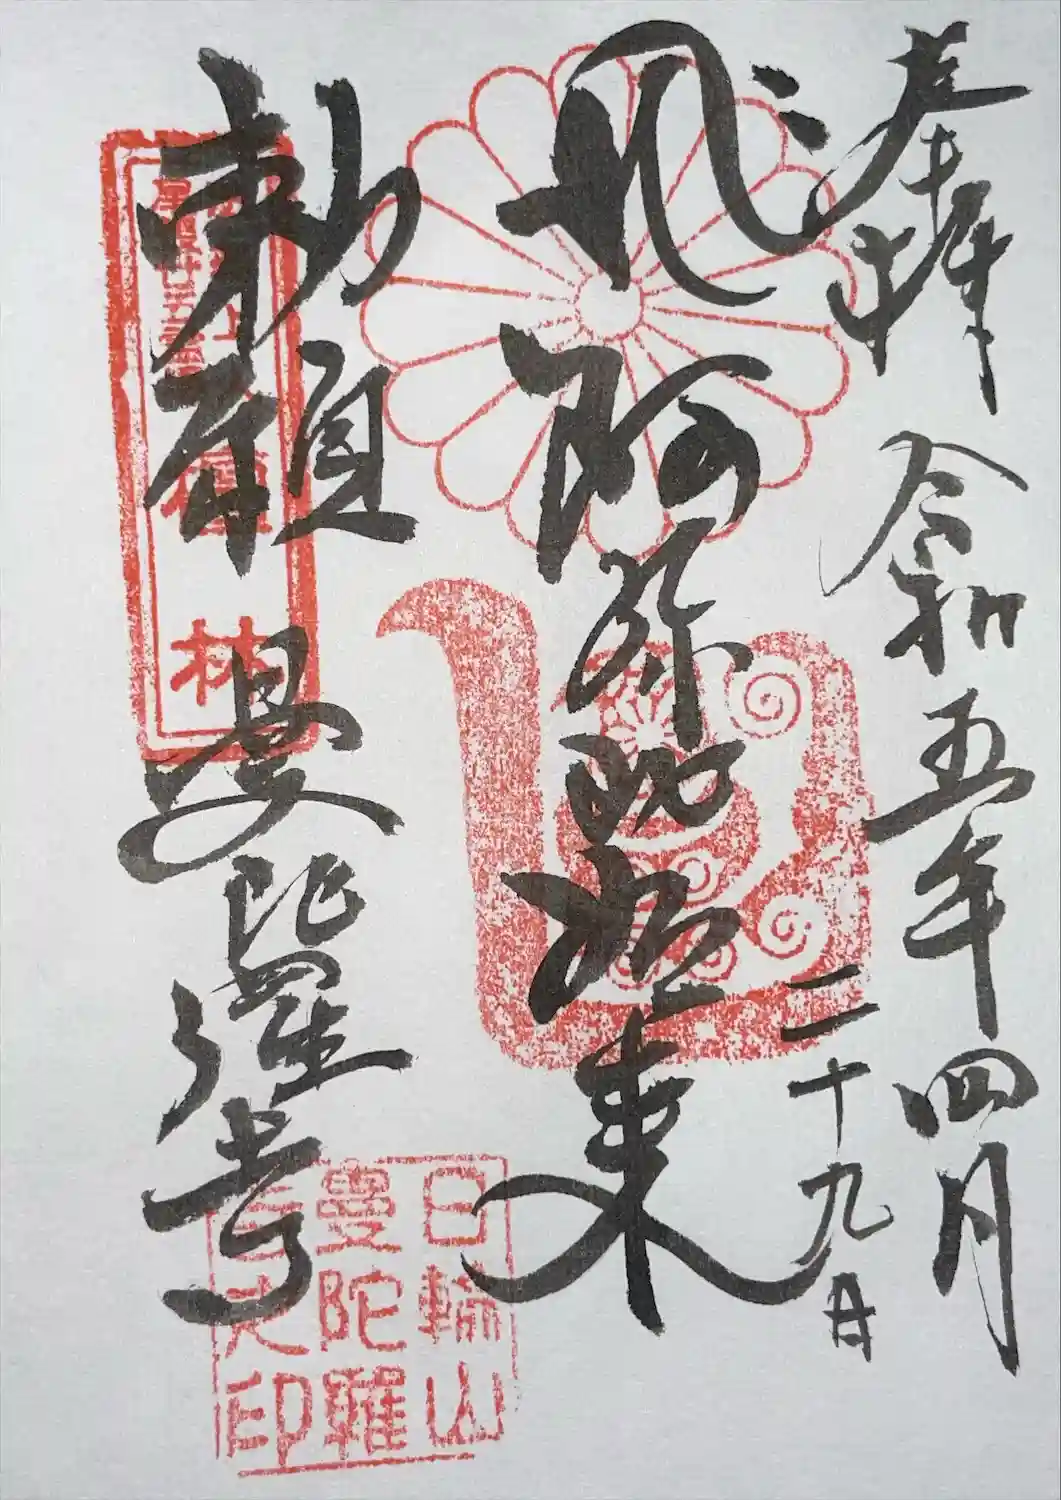 奉拝 令和五年四月
二十九日
阿弥陀如来
勅願 曼陀羅寺
林
日輪山
曼陀羅
寺之印